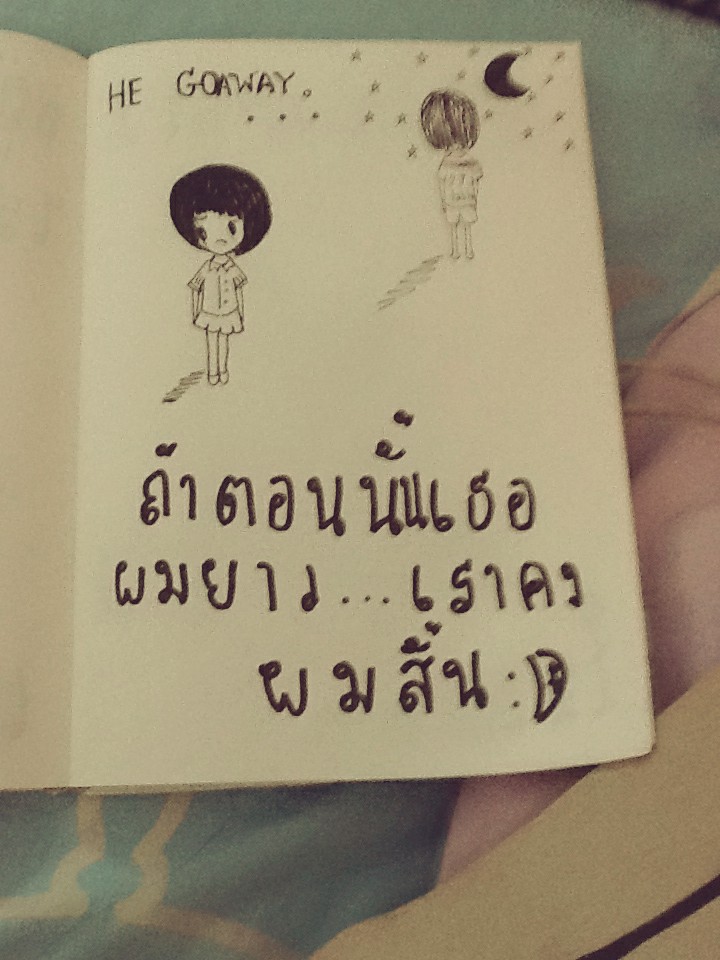 HE GOAWAY.
...
ถ้าตอนนั้นเธอ
ผมยาว...เราคง
ผมสั้น :D